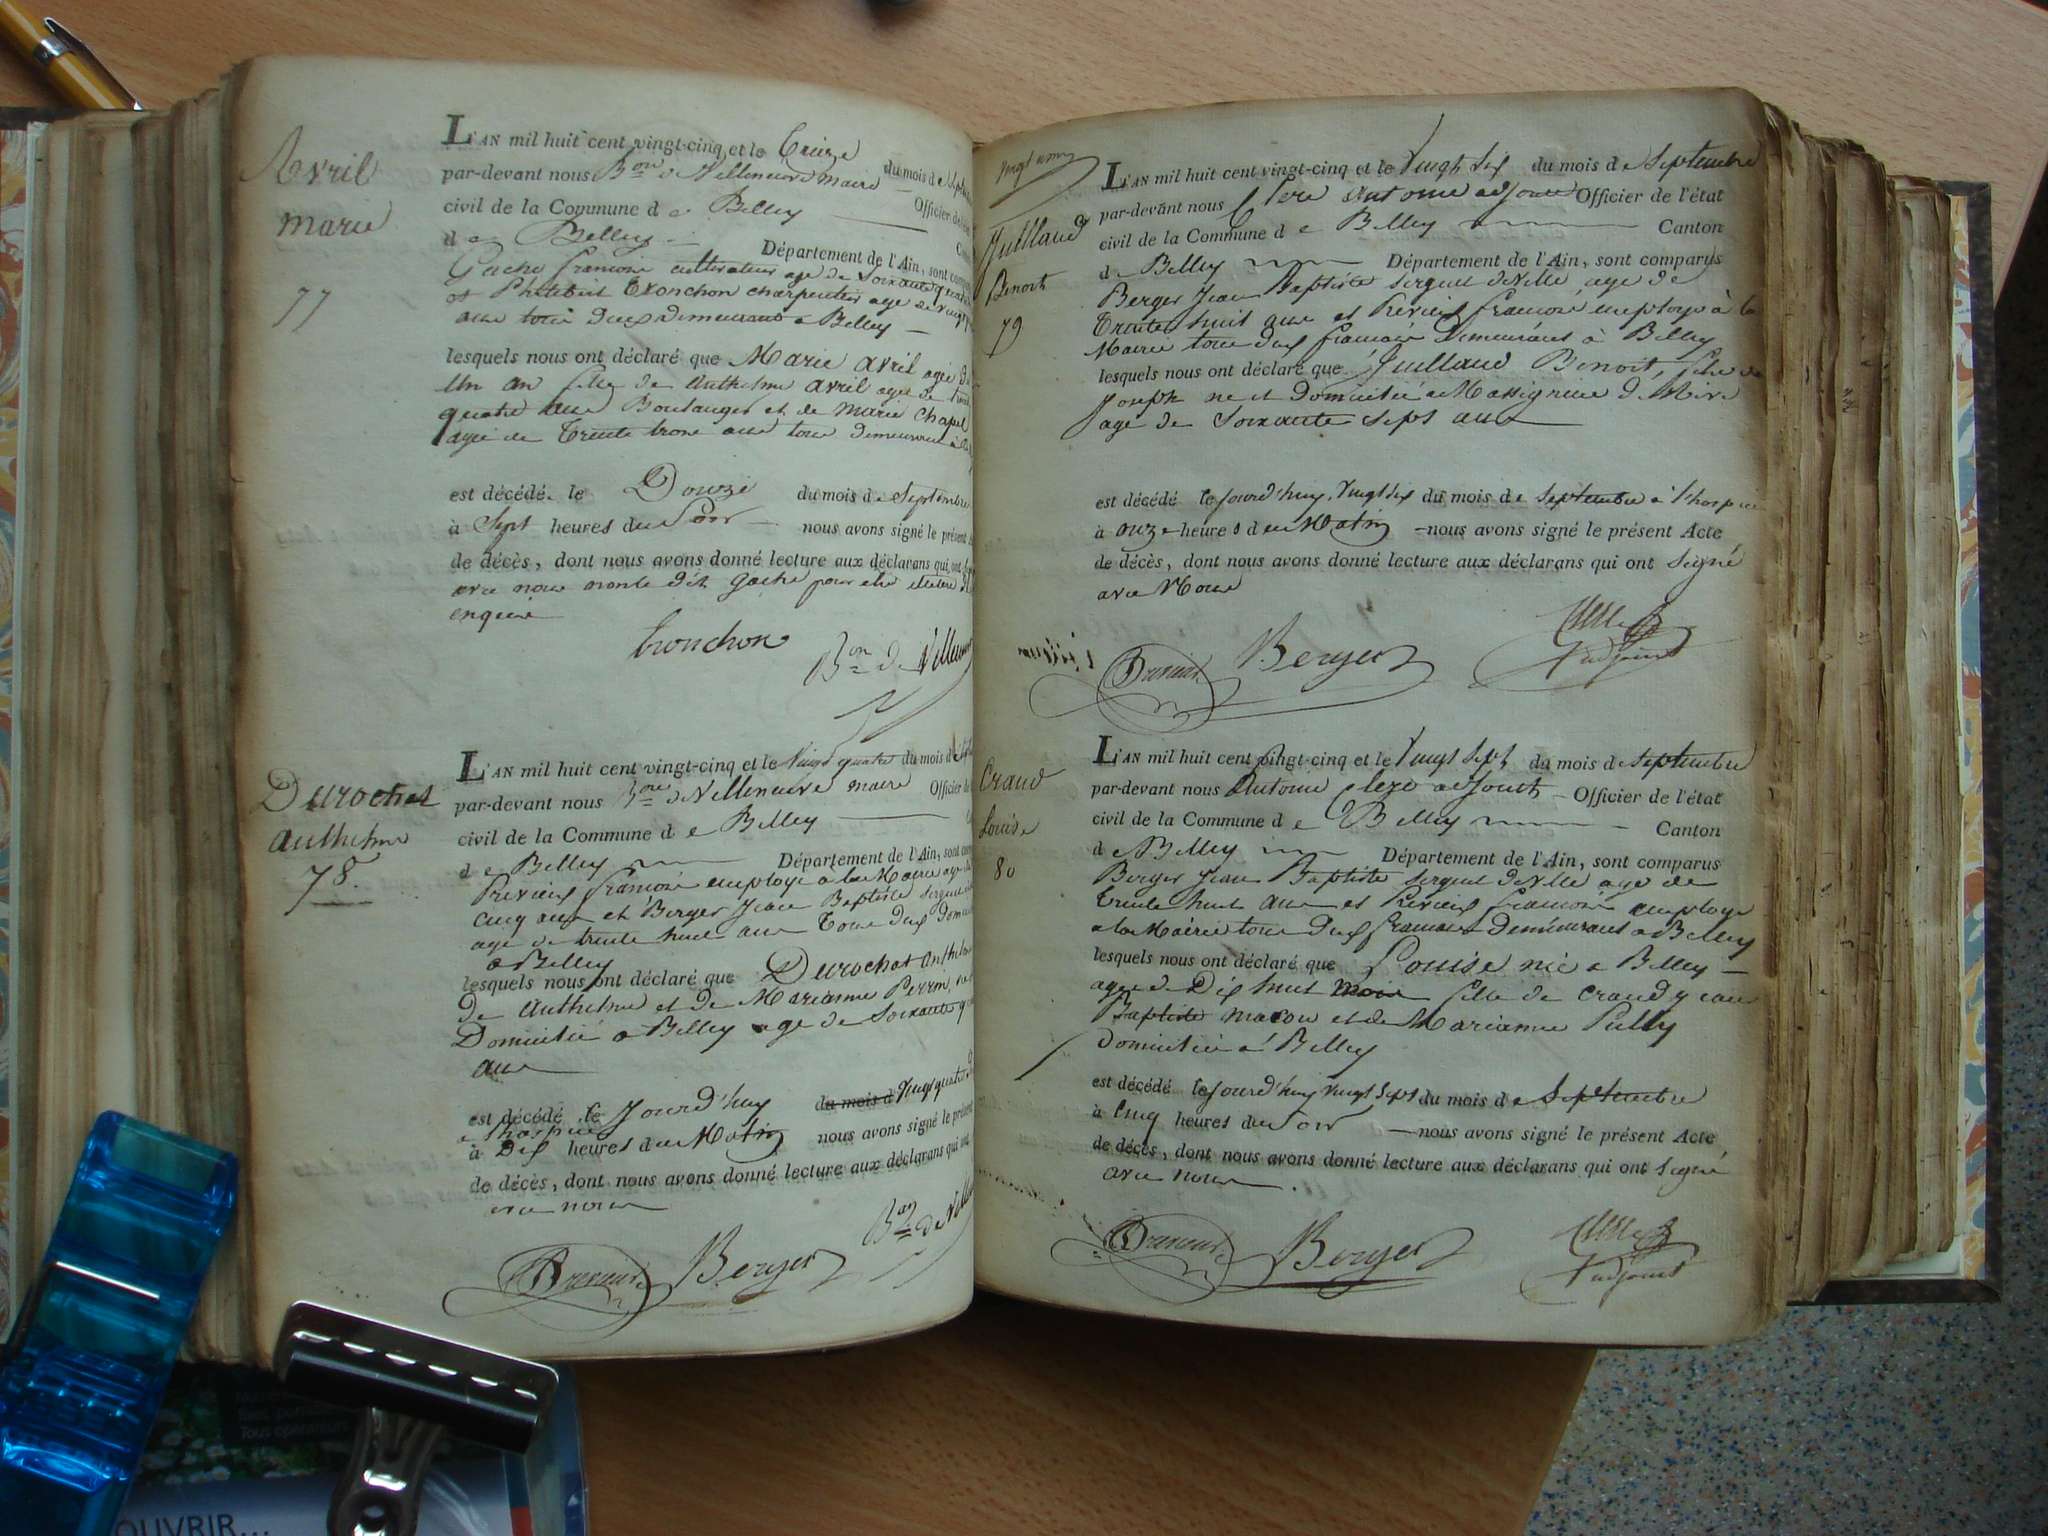 Avril
Marie
77
L'AN mil huit cent vingt-cinq et le treize du mois de
par-devant nous Bon de Villeneuve maire Officier de
civil de la Commune de Belley
de Belley Département de l'Ain, sont
Gache françois cultivateur age de Soixante
et Philibert Tronchon charpentier age de
ans tous deux demeurant a Belley
lesquels nous ont déclaré que Marie avril agée de
un an fille de Anthelme avril age de
quatre ans Boulanger et de Marie Chapel
agée de trente trois ans tous demeurant à
est décédé le Douze du mois de Septembre
à Sept heures du Soir nous avons signé le présent
de décès, dont nous avons donné lecture aux déclarans qui ont
avec nous gache pour etre
enquis
tronchon Bon de Villeneuve
Durochat
anthelme
78.
L'AN mil huit cent vingt-cinq et le vingt quatre du mois de
par-devant nous Bon de Villeneuve maire Officier de
civil de la Commune de Belley
de Belley Département de l'Ain, sont
françois employé à la Mairie age
cinq ans et Berger Jean Baptiste sergent
age de trente huit ans tous deux
a Belley
lesquels nous ont déclaré que Durochat anthelme
de Anthelme et de Marianne Perrin,
Domicilié a Belley age de Soixante
ans
est décédé le Jourd'huy du mois d vingt quatre
a l'hospice
à Dix heures du Matin nous avons signé le présent
de décès, dont nous avons donné lecture aux déclarans qui ont
avec nous
Berger Bon de
Juilland
Benoit
79
L'AN mil huit cent vingt-cinq et le vingt six du mois de Septembre
par-devant nous Clerc Antoine adjoint Officier de l'état
civil de la Commune de Belley Canton
de Belley Département de l'Ain, sont comparus
Berger Jean Baptiste sergent de Ville, age de
trente huit ans et françois employé à la
Mairie tous deux françois Demeurans à Belley
lesquels nous ont déclaré que Juilland Benoit,
Joseph né et domicilié a Massignieu de Rive
age de Soixante Sept ans
est décédé le Jourd'huy, vingt six du mois de Septembre à l'hospice
à onze heures du Matin nous avons signé le présent Acte
de décès, dont nous avons donné lecture aux déclarans qui ont signé
avec Nous
Berger
adjoint
Craud
Louise
80
L'AN mil huit cent vingt-cinq et le vingt sept du mois de Septembre
par-devant nous Antoine Clerc adjoint Officier de l'état
civil de la Commune de Belley Canton
de Belley Département de l'Ain, sont comparus
Berger Jean Baptiste sergent de Ville age de
trente huit ans et françois employé
a la Mairie tous deux françois Demeurans a Belley
lesquels nous ont déclaré que Louise née a Belley
agée de Dix huit mois fille de Craud Jean
Baptiste maçon et de Marianne
domiciliée a Belley
est décédé le Jourd'huy vingt sept du mois de Septembre
à Cinq heures du Soir nous avons signé le présent Acte
de décès, dont nous avons donné lecture aux déclarans qui ont signé
avec nous
Berger
adjoint
Tous opérateurs
OUVRIR...